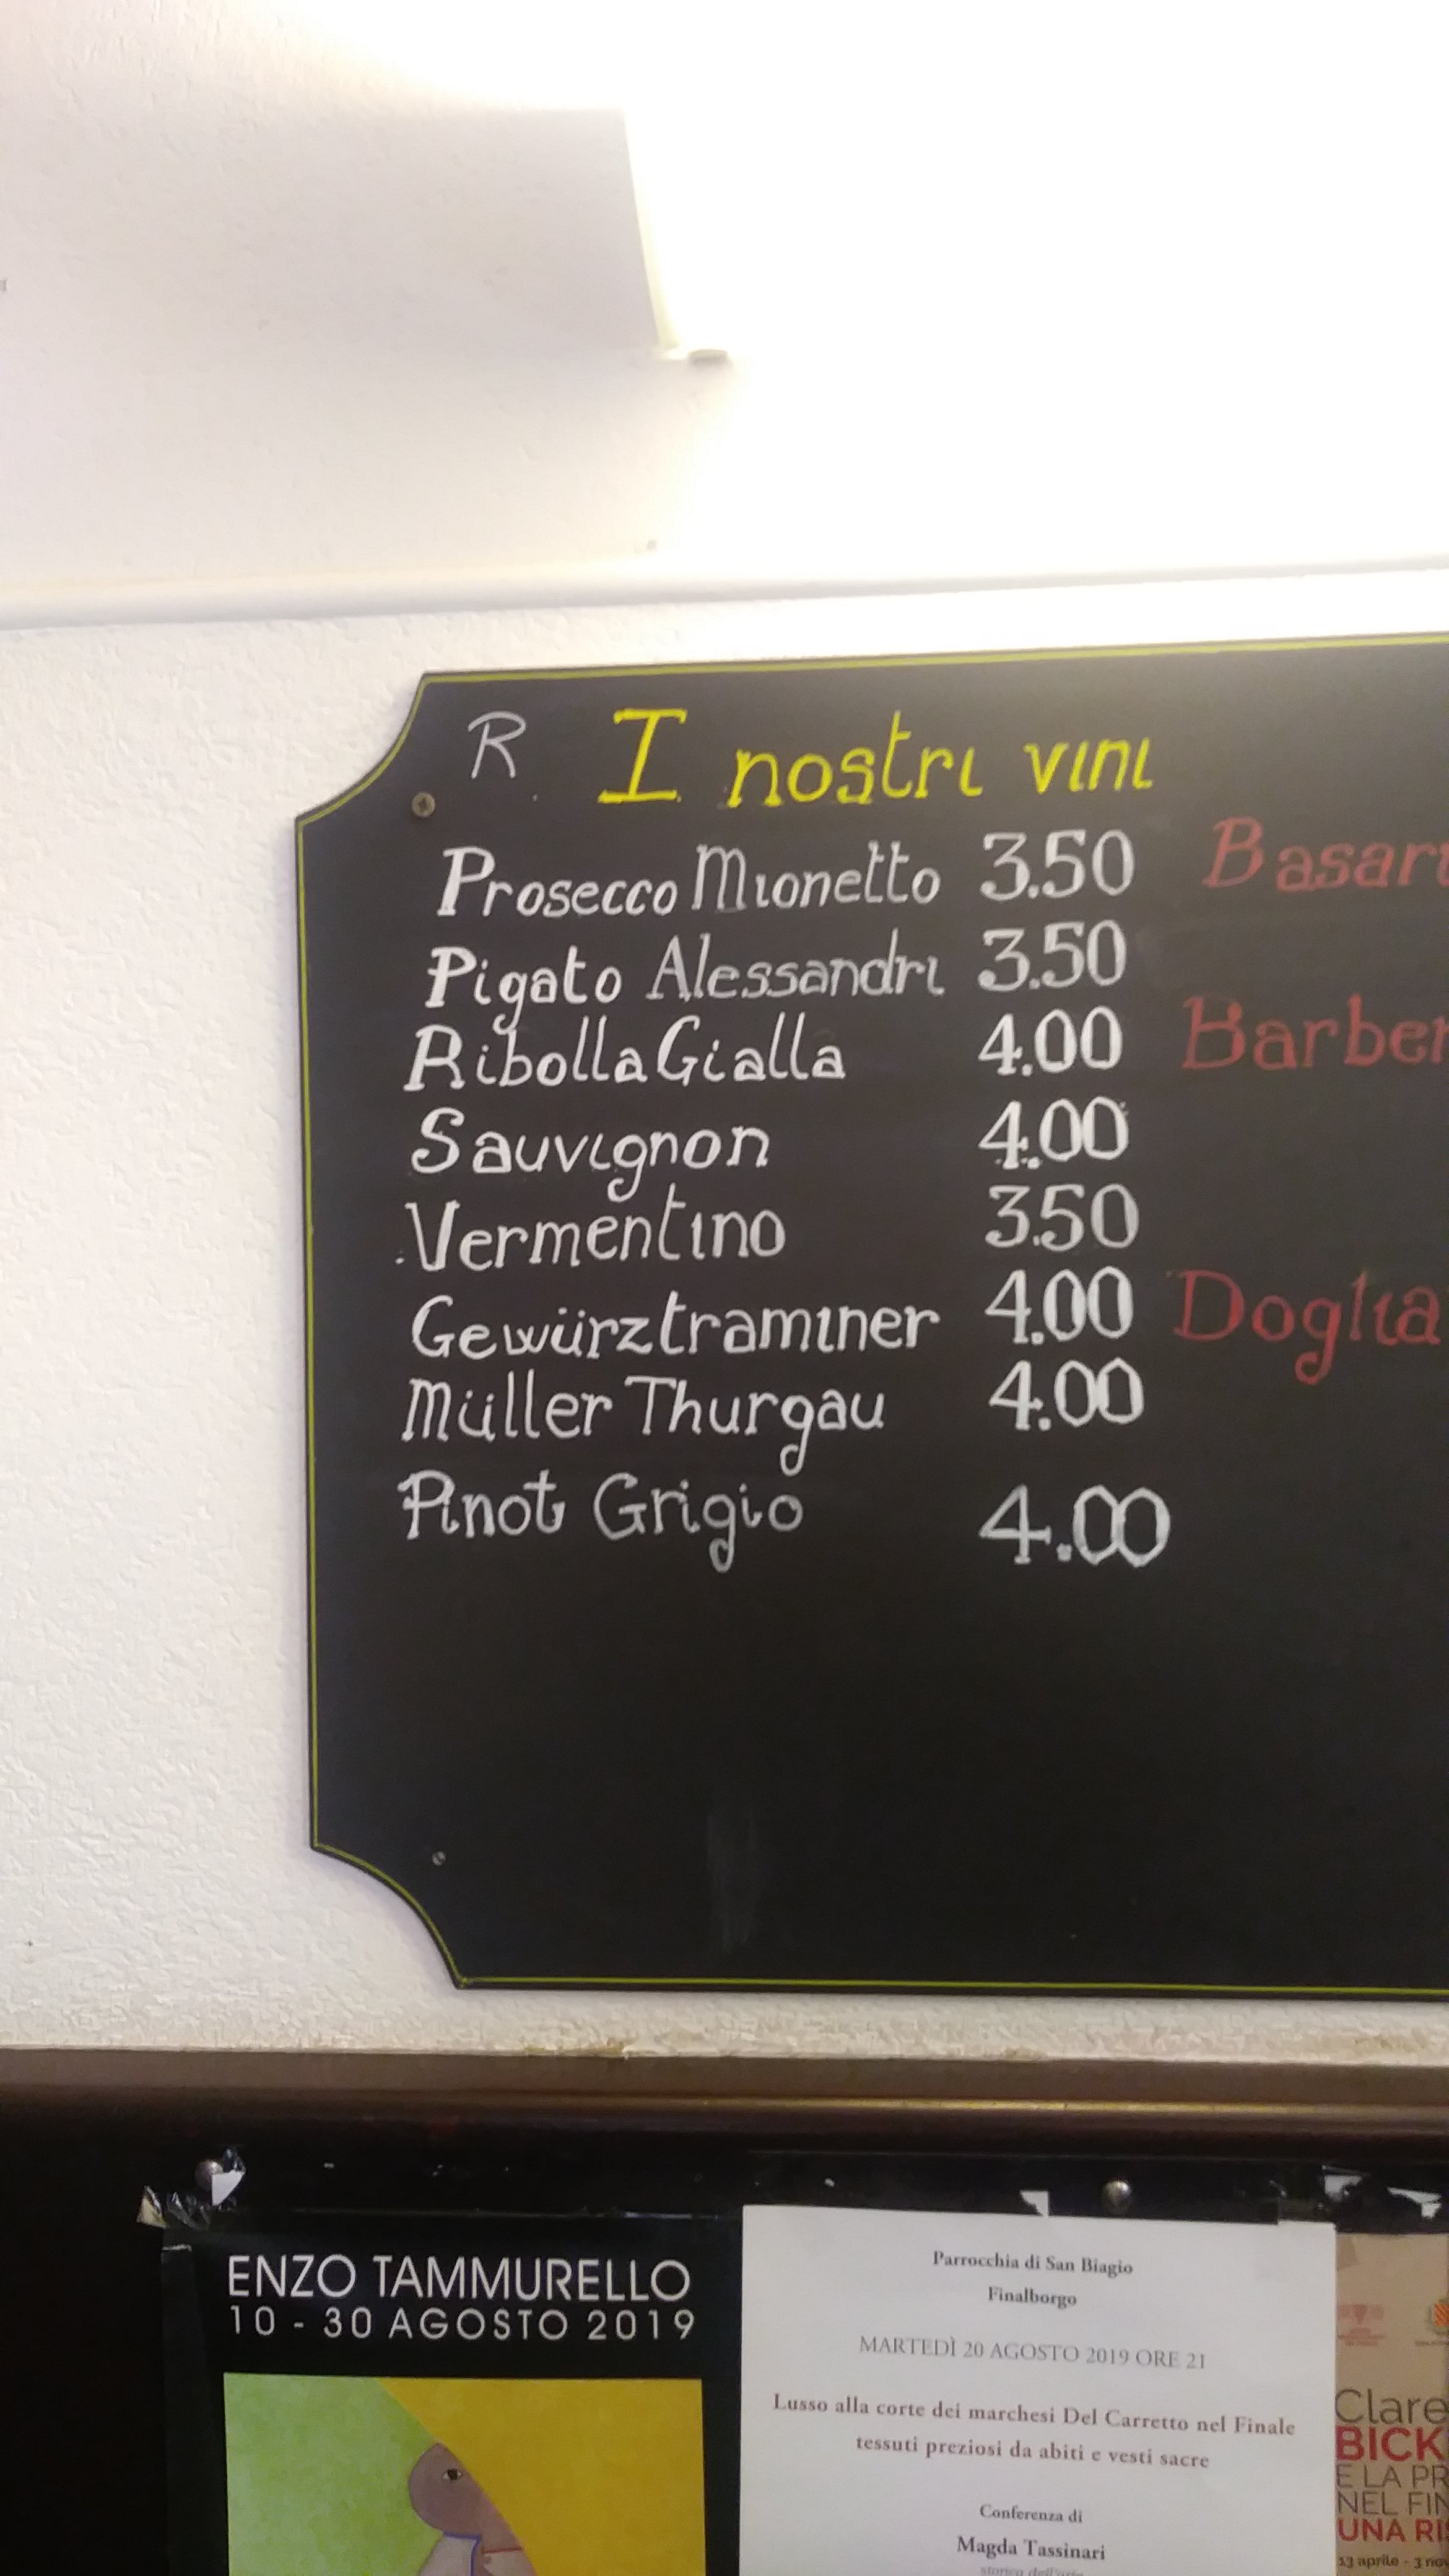 R I nostri vini
Prosecco Mionetto 3.50
Pigato Alessandri 3.50
Ribolla Gialla 4.00
Sauvignon 4.00
Vermentino 3.50
Gewürztraminer 4.00
Müller Thurgau 4.00
Pinot Grigio 4.00
Basar
Barber
Doglia
ENZO TAMMURELLO
10 - 30 AGOSTO 2019
Parrocchia di San Biagio
Finalborgo
MARTEDÌ 20 AGOSTO 2019 ORE 21
Lusso alla corte dei marchesi Del Carretto nel Finale
tessuti preziosi da abiti e vesti sacre
Conferenza di
Magda Tassinari
storica dell'arte
Clare
BICK
E LA PR
NEL FIN
UNA RI
13 aprile - 3 nov